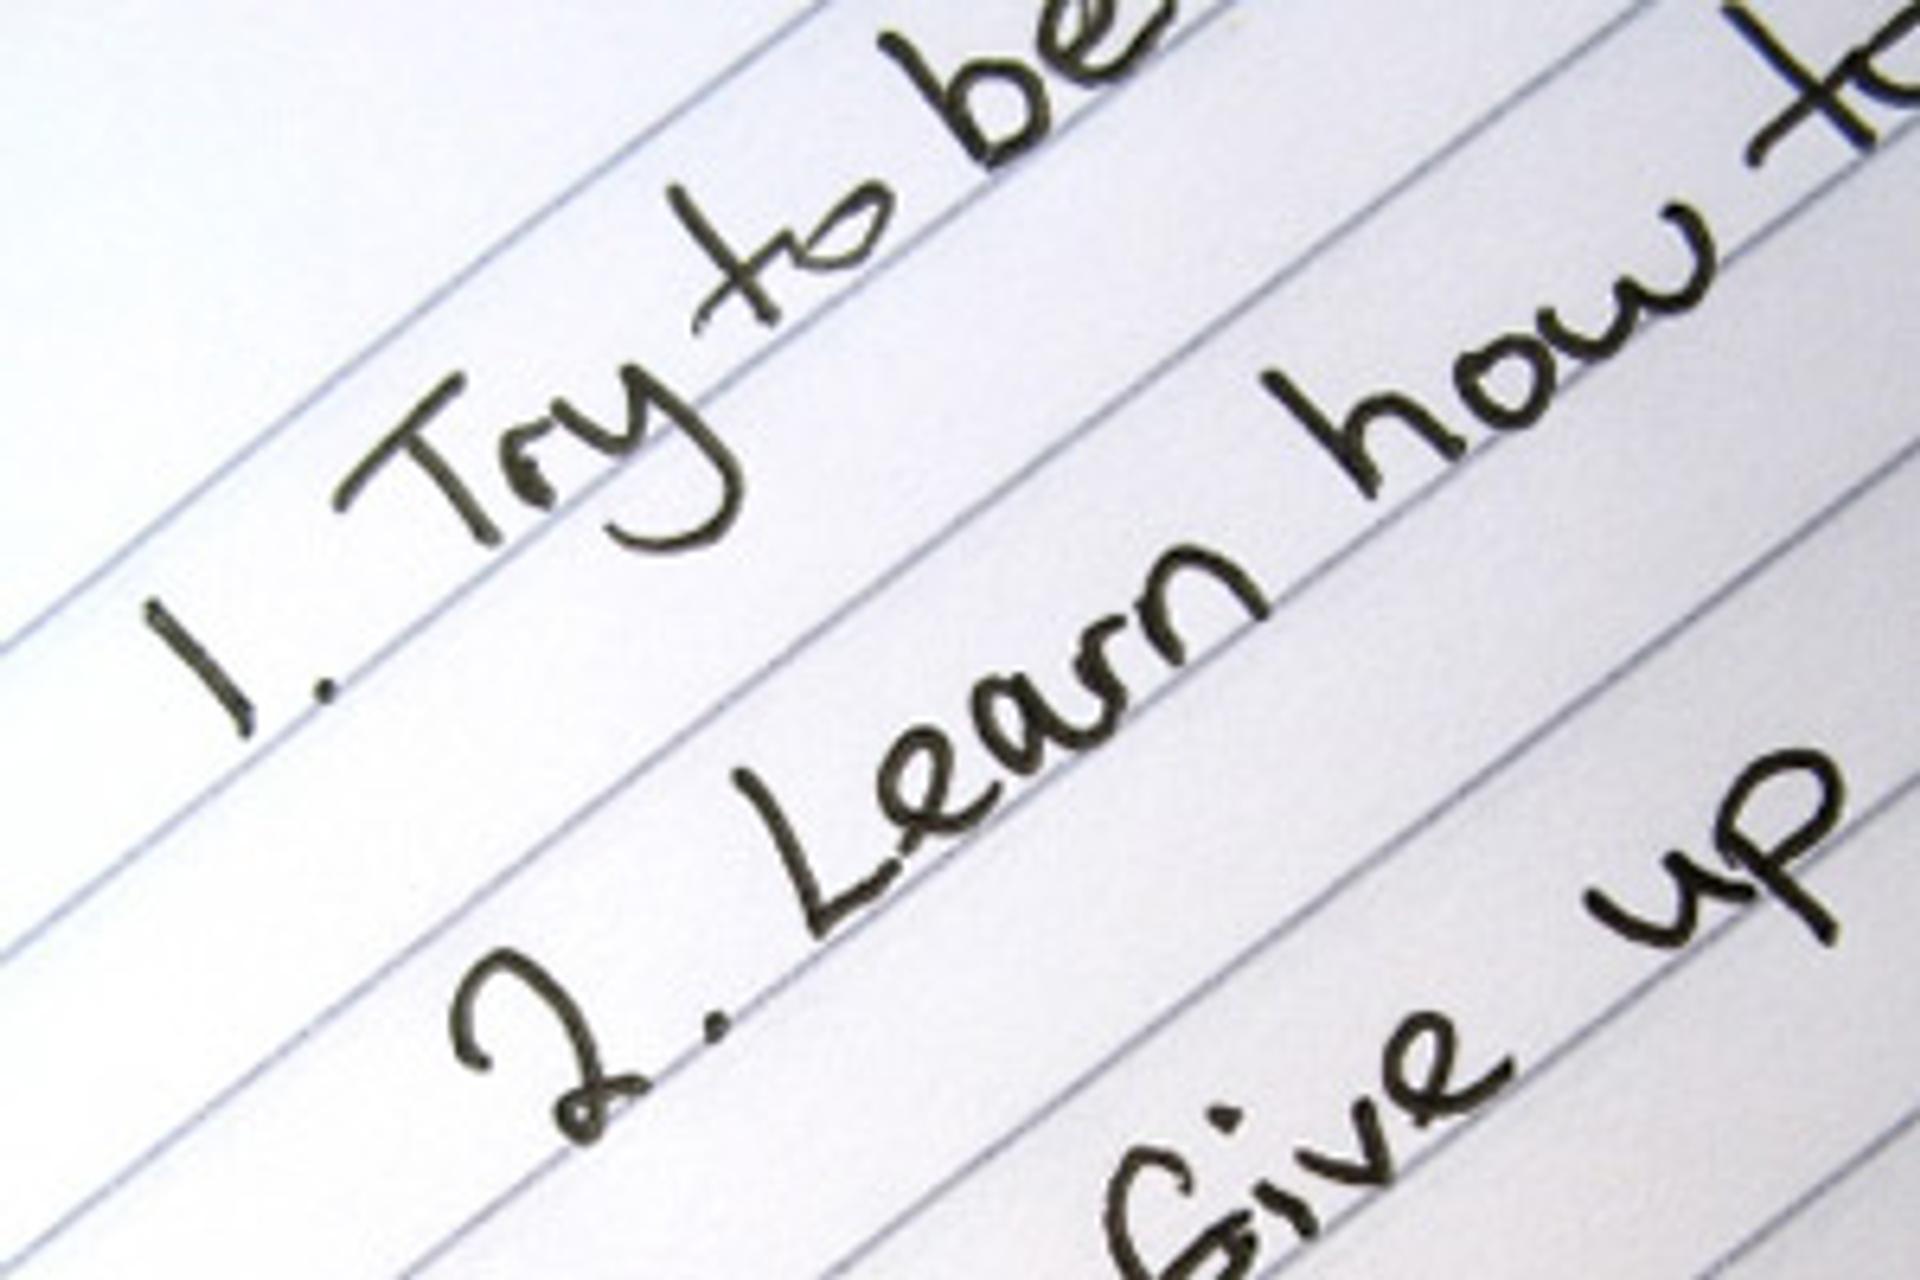 1. Try to be
2. Learn how to
Give up